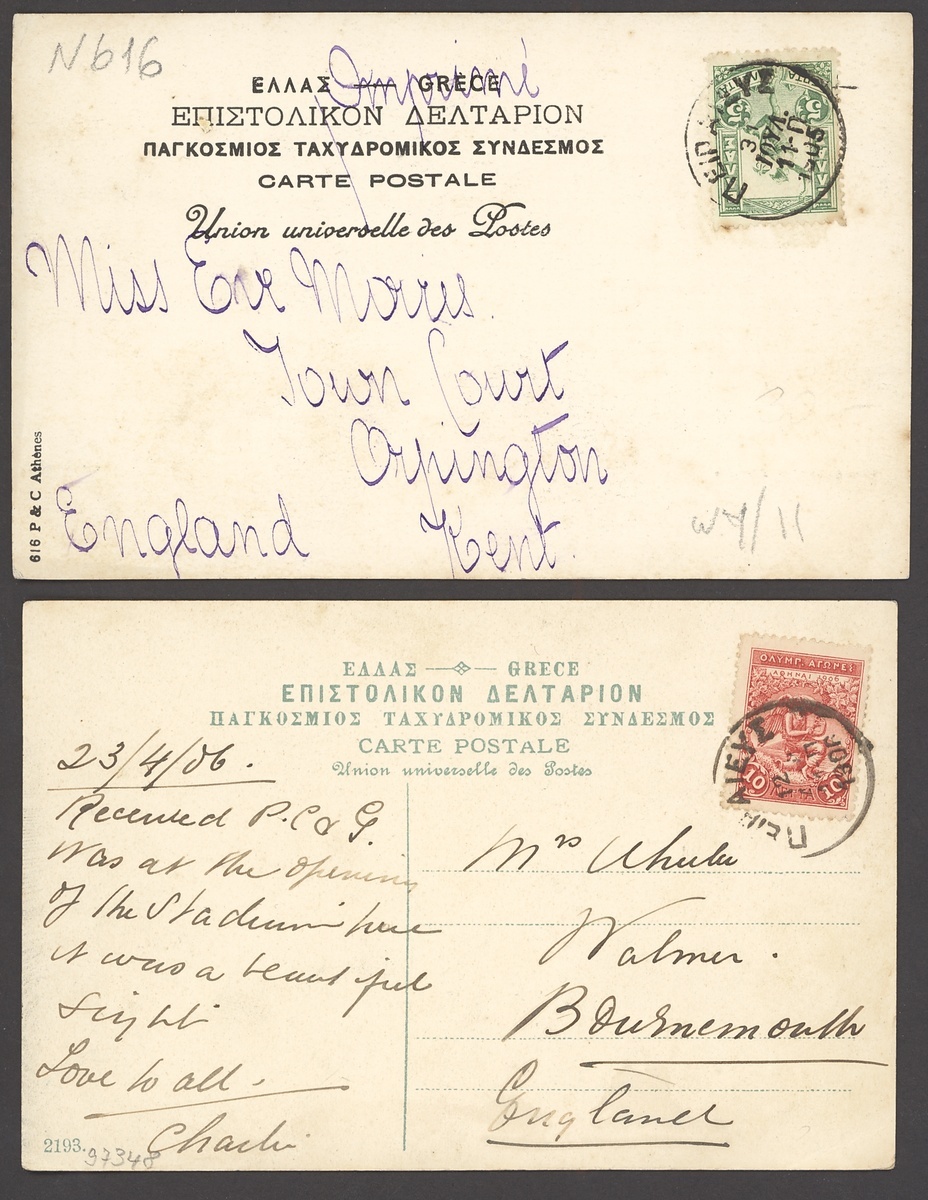 N616
Imprimé
ΕΛΛΑΣ — GRÈCE
ΕΠΙΣΤΟΛΙΚΟΝ ΔΕΛΤΑΡΙΟΝ
ΠΑΓΚΟΣΜΙΟΣ ΤΑΧΥΔΡΟΜΙΚΟΣ ΣΥΝΔΕΣΜΟΣ
CARTE POSTALE
Union universelle des Postes
5 5
ΠΕΙΡΑΙΕΥΣ
31 ΙΟΥΛ.
11-Π
1905
Miss Eve Morris.
Town Court
Orpington
England Kent.
616 P & C Athènes
WY/11
ΕΛΛΑΣ — GRECE
ΕΠΙΣΤΟΛΙΚΟΝ ΔΕΛΤΑΡΙΟΝ
ΠΑΓΚΟΣΜΙΟΣ ΤΑΧΥΔΡΟΜΙΚΟΣ ΣΥΝΔΕΣΜΟΣ
CARTE POSTALE
Union universelle des Postes
ΟΛΥΜΠ. ΑΓΩΝΕΣ
ΑΘΗΝΑΙ 1906
10 10
ΠΕΙΡΑΙΕΥΣ
23/4/06.
Received P.C & G.
Was at the opening
of the Stadium here
it was a beautiful
sight
Love to all.
Charlie
Mrs
Walmer.
Bournemouth
England
2193.
97348